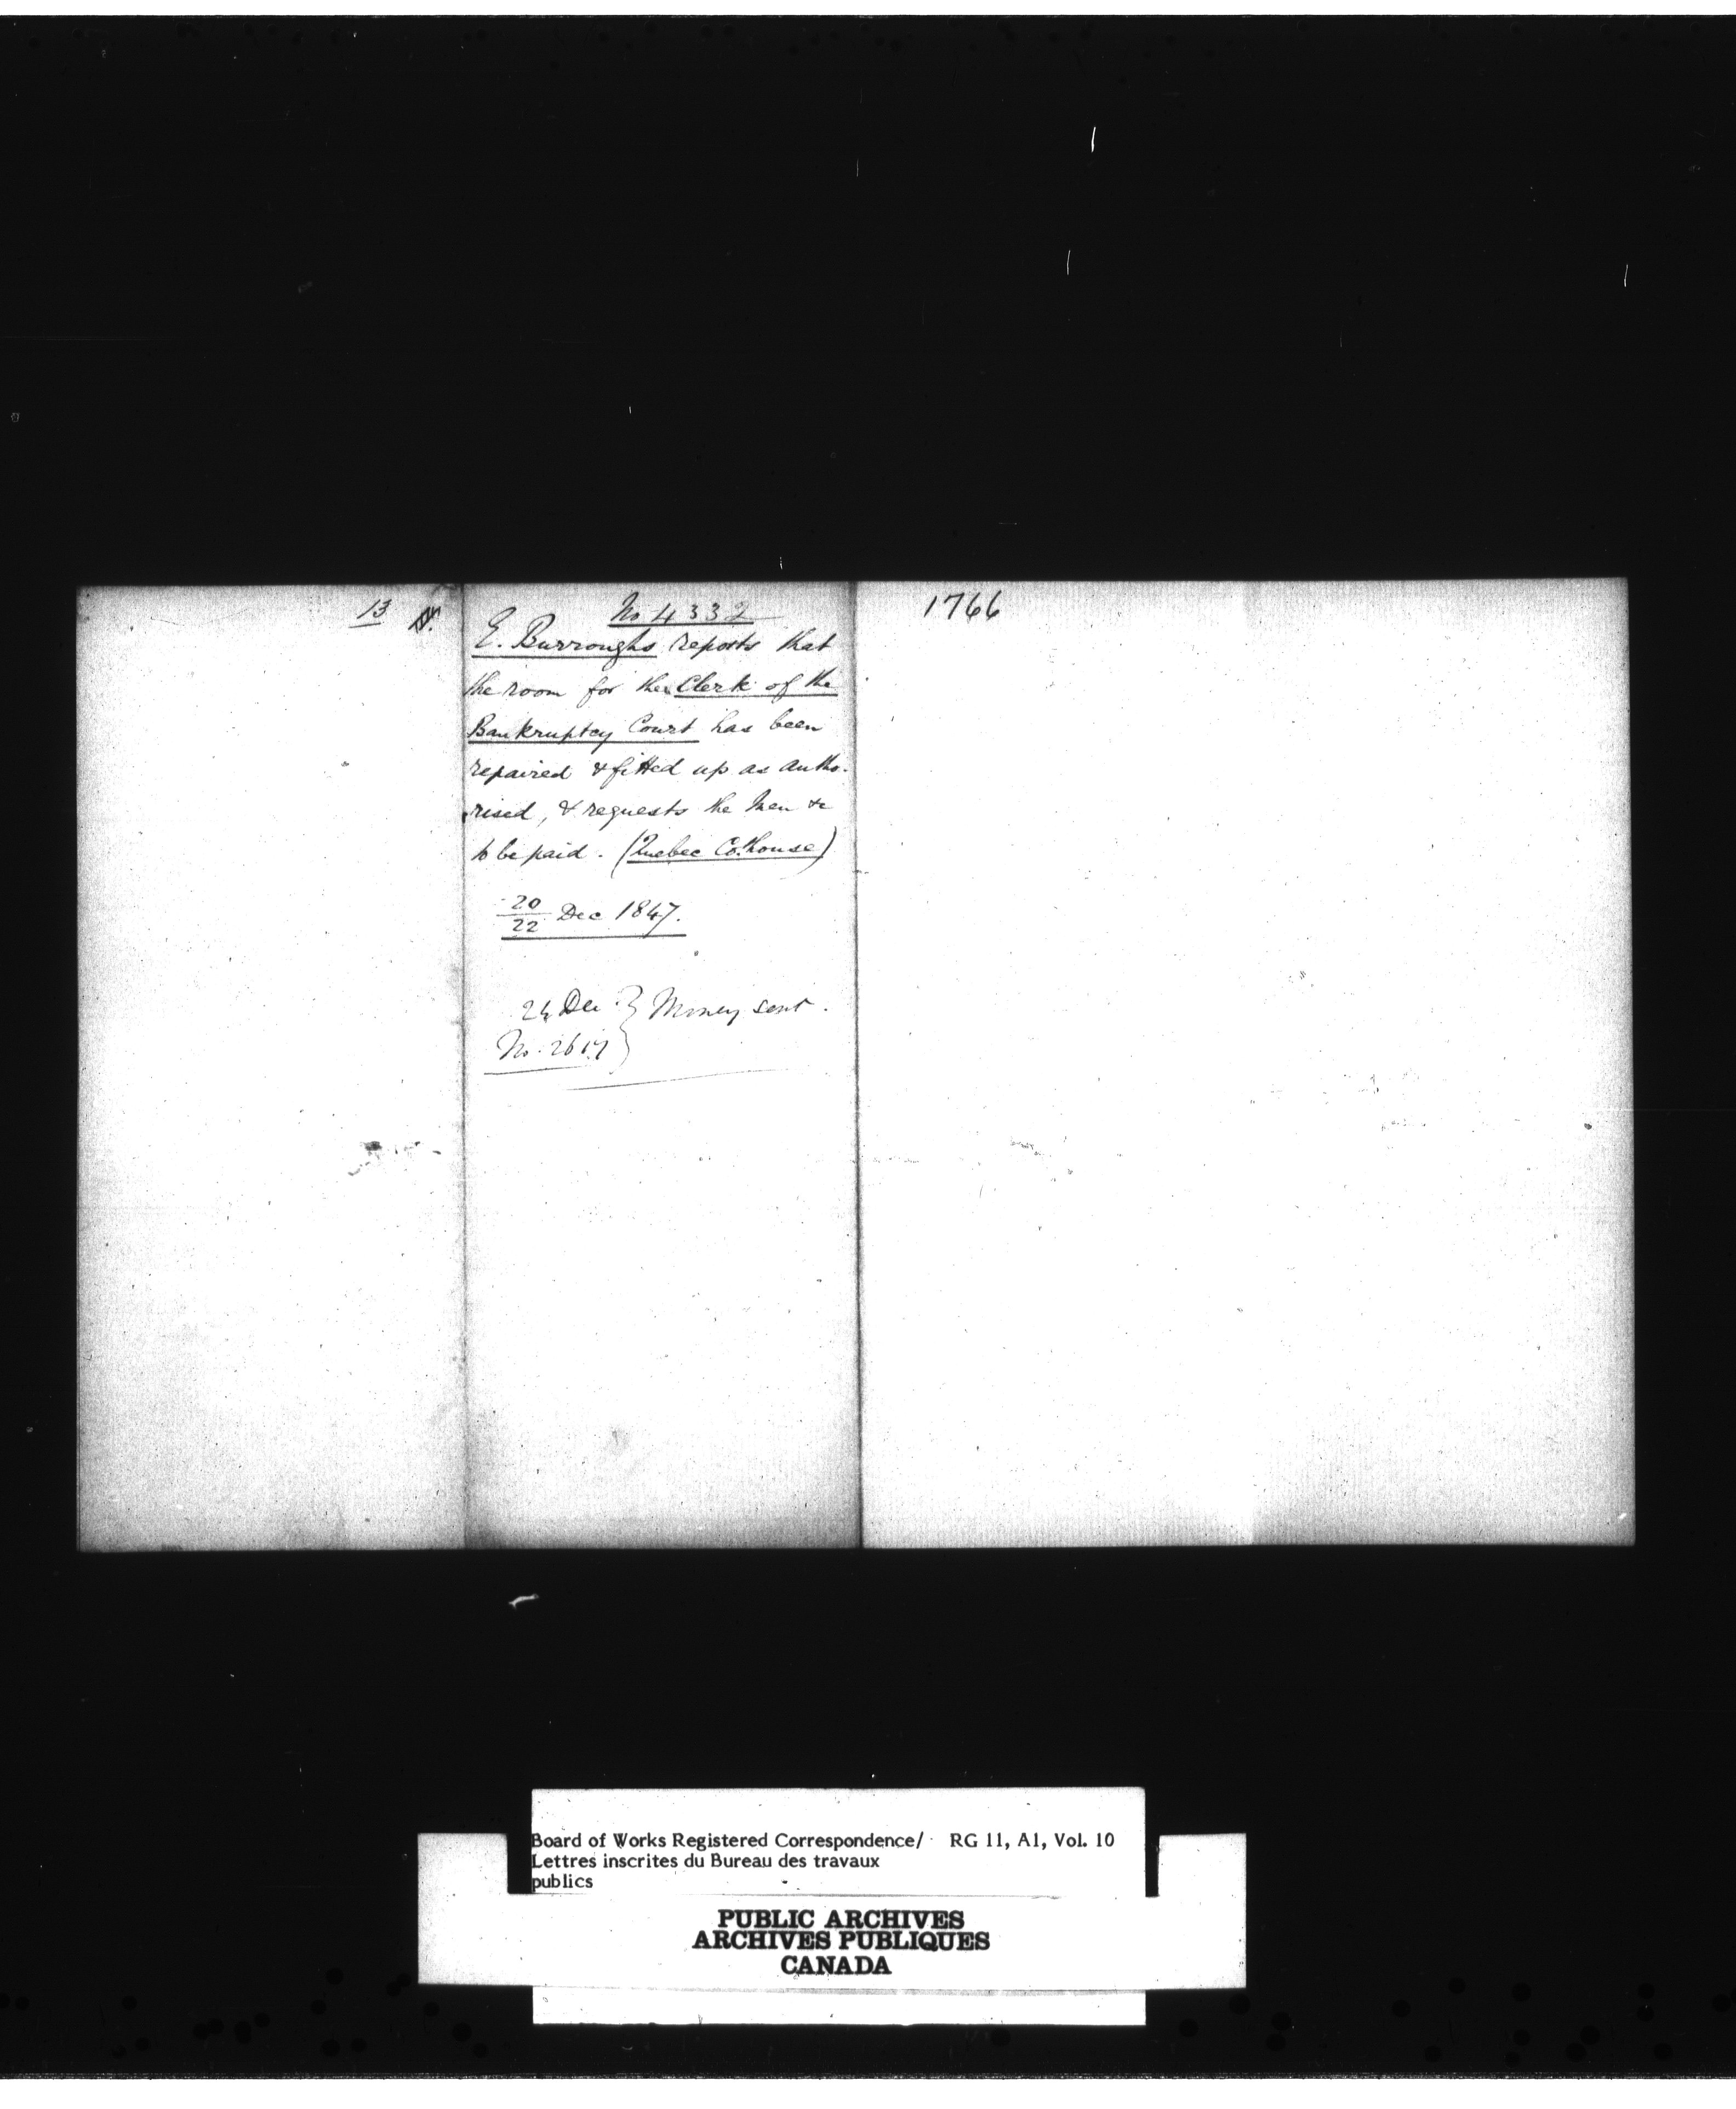 13
No 4332
E. Burroughs reports that
the room for the Clerk of the
Bankruptcy Court has been
repaired & fitted up as autho-
rised, & requests the men &c
to be paid. (Quebec Co. house)
20/22 Dec 1847.
24 Dec } Money sent.
No. 2617
1766
Board of Works Registered Correspondence/ RG 11, A1, Vol. 10
Lettres inscrites du Bureau des travaux
publics
PUBLIC ARCHIVES
ARCHIVES PUBLIQUES
CANADA